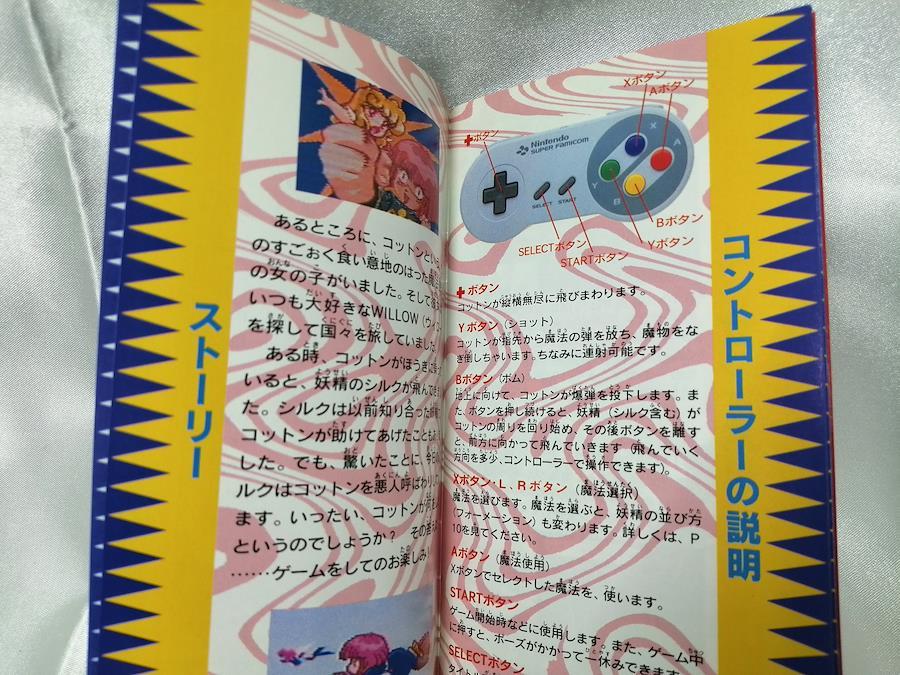 ストーリー
あるところに、コットンという
のすごぉく食い意地のはった
の女の子がいました。そして
いつも大好きなWILLOW（ウィロー
を探して国々を旅していました。
ある時、コットンがほうきに
いると、妖精のシルクが飛んで
た。シルクは以前知り合った
コットンが助けてあげたことも
した。でも、驚いたことに、今
ルクはコットンを悪人呼ばわり
ます。いったい、コットンが何
というのでしょうか？ その答
……ゲームをしてのお楽しみ
コントローラーの説明
Xボタン
Aボタン
✚ボタン
Nintendo
SUPER FAMICOM
X
A
Y
B
SELECT START
Bボタン
Yボタン
SELECTボタン
STARTボタン
✚ボタン
コットンが縦横無尽に飛びまわります。
Yボタン（ショット）
コットンが指先から魔法の弾を放ち、魔物をな
ぎ倒しちゃいます。ちなみに連射可能です。
Bボタン（ボム）
地上に向けて、コットンが爆弾を投下します。ま
た、ボタンを押し続けると、妖精（シルク含む）が
コットンの周りを回り始め、その後ボタンを離す
と、前方に向かって飛んでいきます（飛んでいく
方向を多少、コントローラーで操作できます）。
Xボタン・L、Rボタン（魔法選択）
魔法を選びます。魔法を選ぶと、妖精の並び方
（フォーメーション）も変わります。詳しくは、P
10を見てください。
Aボタン（魔法使用）
Xボタンでセレクトした魔法を、使います。
STARTボタン
ゲーム開始時などに使用します。また、ゲーム中
に押すと、ポーズがかかって一休みできます
SELECTボタン